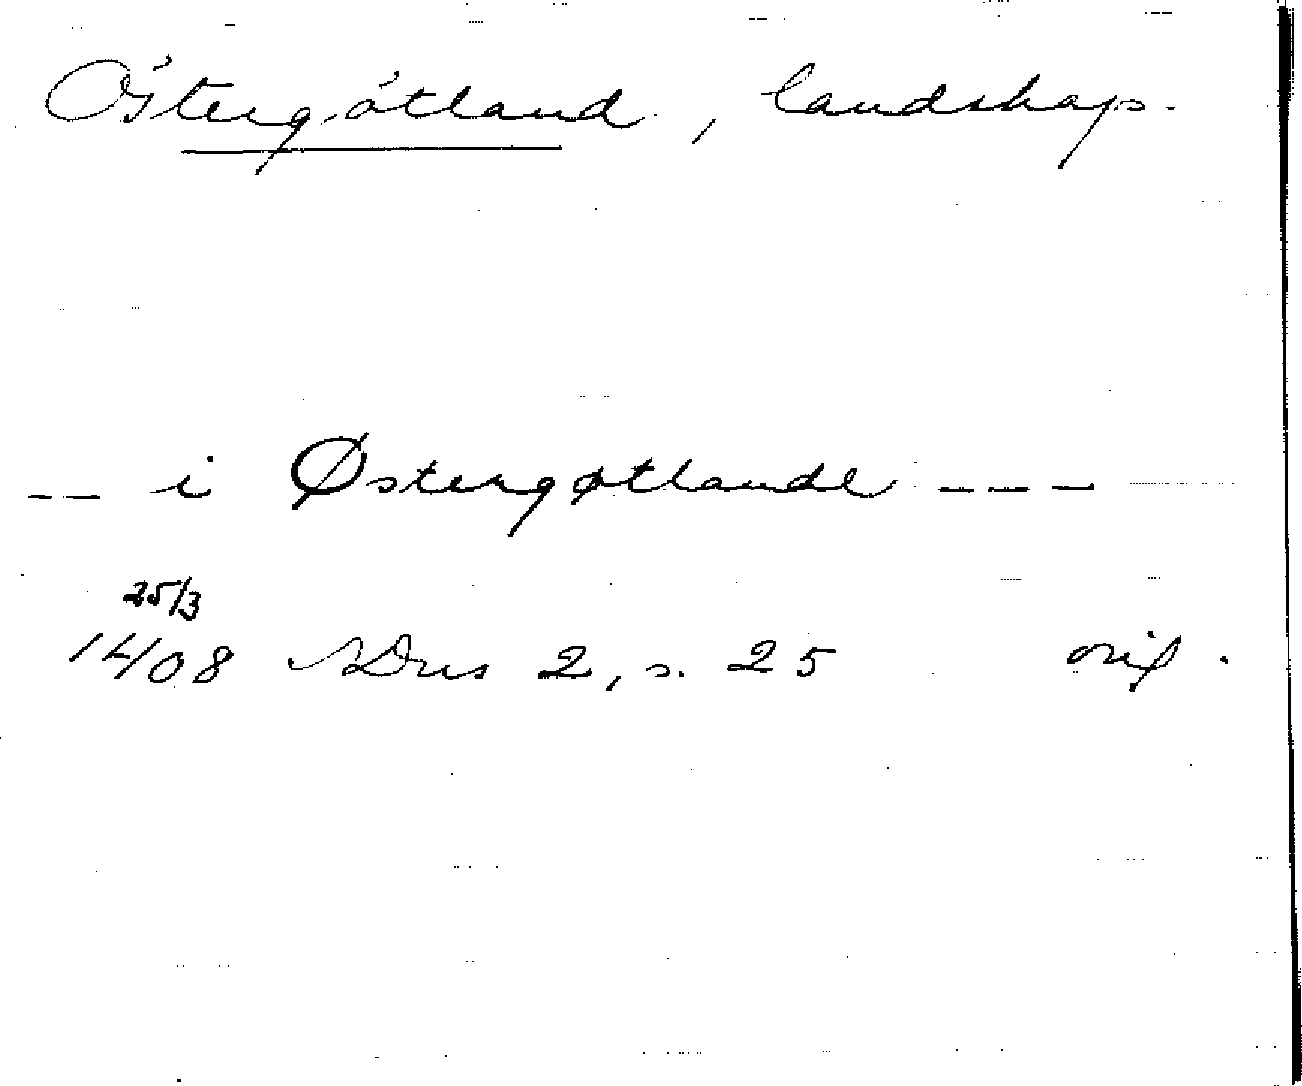 Östergötland, landskap.
-- i Østergøtlande ---
25/3
1408 SDns 2, s. 25 orig.